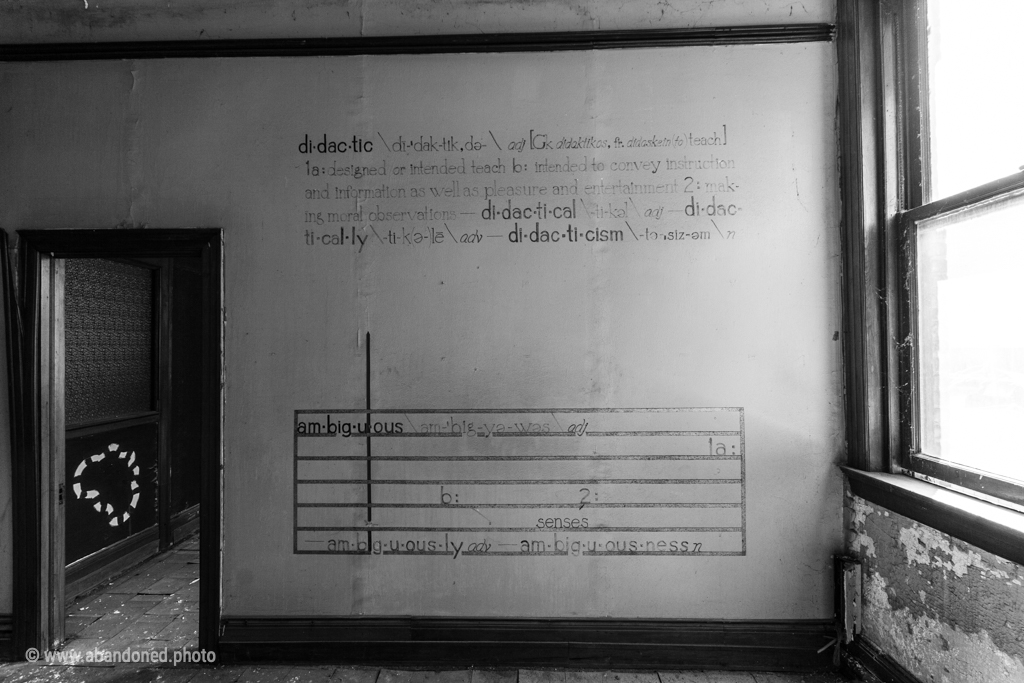 di·dac·tic \di-ˈdak-tik, də-\ adj [Gk didaktikos, fr. didaskein (to) teach]
1a: designed or intended teach b: intended to convey instruction
and information as well as pleasure and entertainment 2: mak-
ing moral observations — di·dac·ti·cal \-ti-kəl\ adj — di·dac-
ti·cal·ly \-ti-k(ə-)lē\ adv — di·dac·ti·cism \-tə-ˌsiz-əm\ n
am·big·u·ous \am-ˈbig-yə-wəs\ adj
1a:
b: 2:
senses
— am·big·u·ous·ly adv — am·big·u·ous·ness n
© www.abandoned.photo